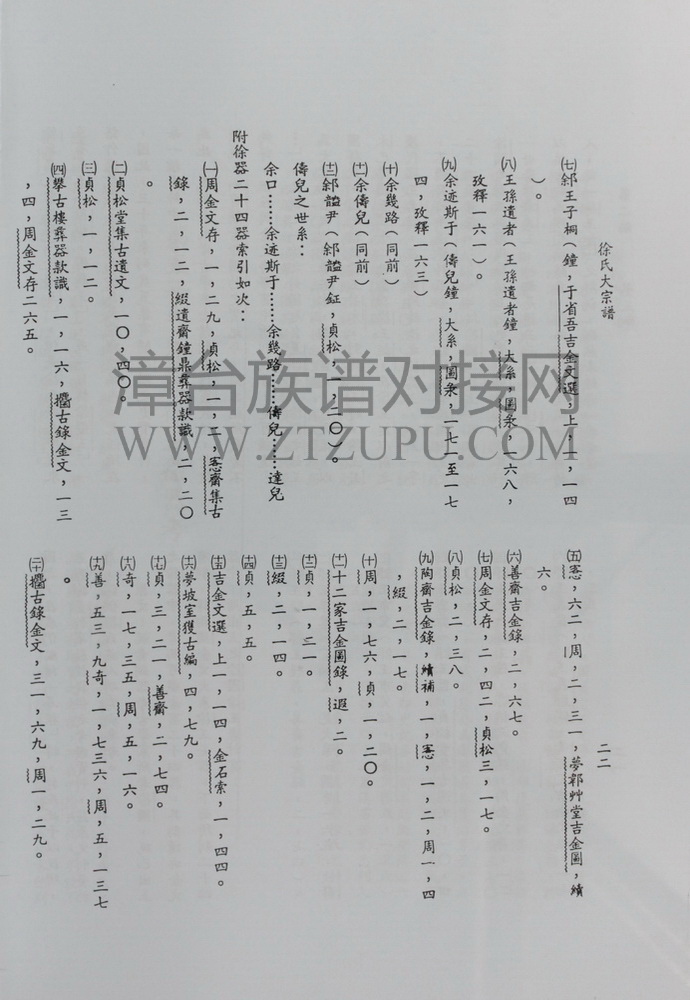 徐氏大宗譜
二二
㈦䣄王子桐(鐘,于省吾吉金文選,上,一,一四
)。
㈧王孫遣者(王孫遣者鐘,大系,圖彔,一六八,
攷釋一六一)。
㈨余迹斯于(儔兒鐘,大系,圖彔,一七一至一七
四,攷釋一六三)
㈩余幾路(同前)
(十一)余儔兒(同前)
(十二)䣄䛑尹(䣄䛑尹鉦,貞松,一,二〇)。
儔兒之世系:
余口……余迹斯于……余幾路……儔兒……達兒
附徐器二十四器索引如次:
㈠周金文存,一,二九,貞松,一,二,愙齋集古
錄,二,一二,綴遺齋鐘鼎彝器款識,二,二〇
。
㈡貞松堂集古遺文,一〇,四〇。
㈢貞松,一,一二。
㈣攀古樓彝器款識,一,一六,攟古錄金文,一三
,四,周金文存二六五。
㈤愙,六二,周,二,三一,夢郼艸堂吉金圖,續
六。
㈥善齋吉金錄,二,六七。
㈦周金文存,二,四二,貞松三,一七。
㈧貞松,二,三八。
㈨陶齋吉金錄,續補,一,愙,一,二,周一,四
,綴,二,一七。
㈩周,一,七六,貞,一,二〇。
(十一)十二家吉金圖錄,遐,二。
(十二)貞,一,二一。
(十三)綴,二,一四。
(十四)貞,五,五。
(十五)吉金文選,上一,一四,金石索,一,四四。
(十六)夢坡室獲古編,四,七九。
(十七)貞,三,二一,善齋,二,七四。
(十八)奇,一七,三五,周,五,一六。
(十九)善,五三,九奇,一,七三六,周,五,一三七
。
(二十)攟古錄金文,三一,六九,周一,二九。
漳台族谱对接网
WWW.ZTZUPU.COM